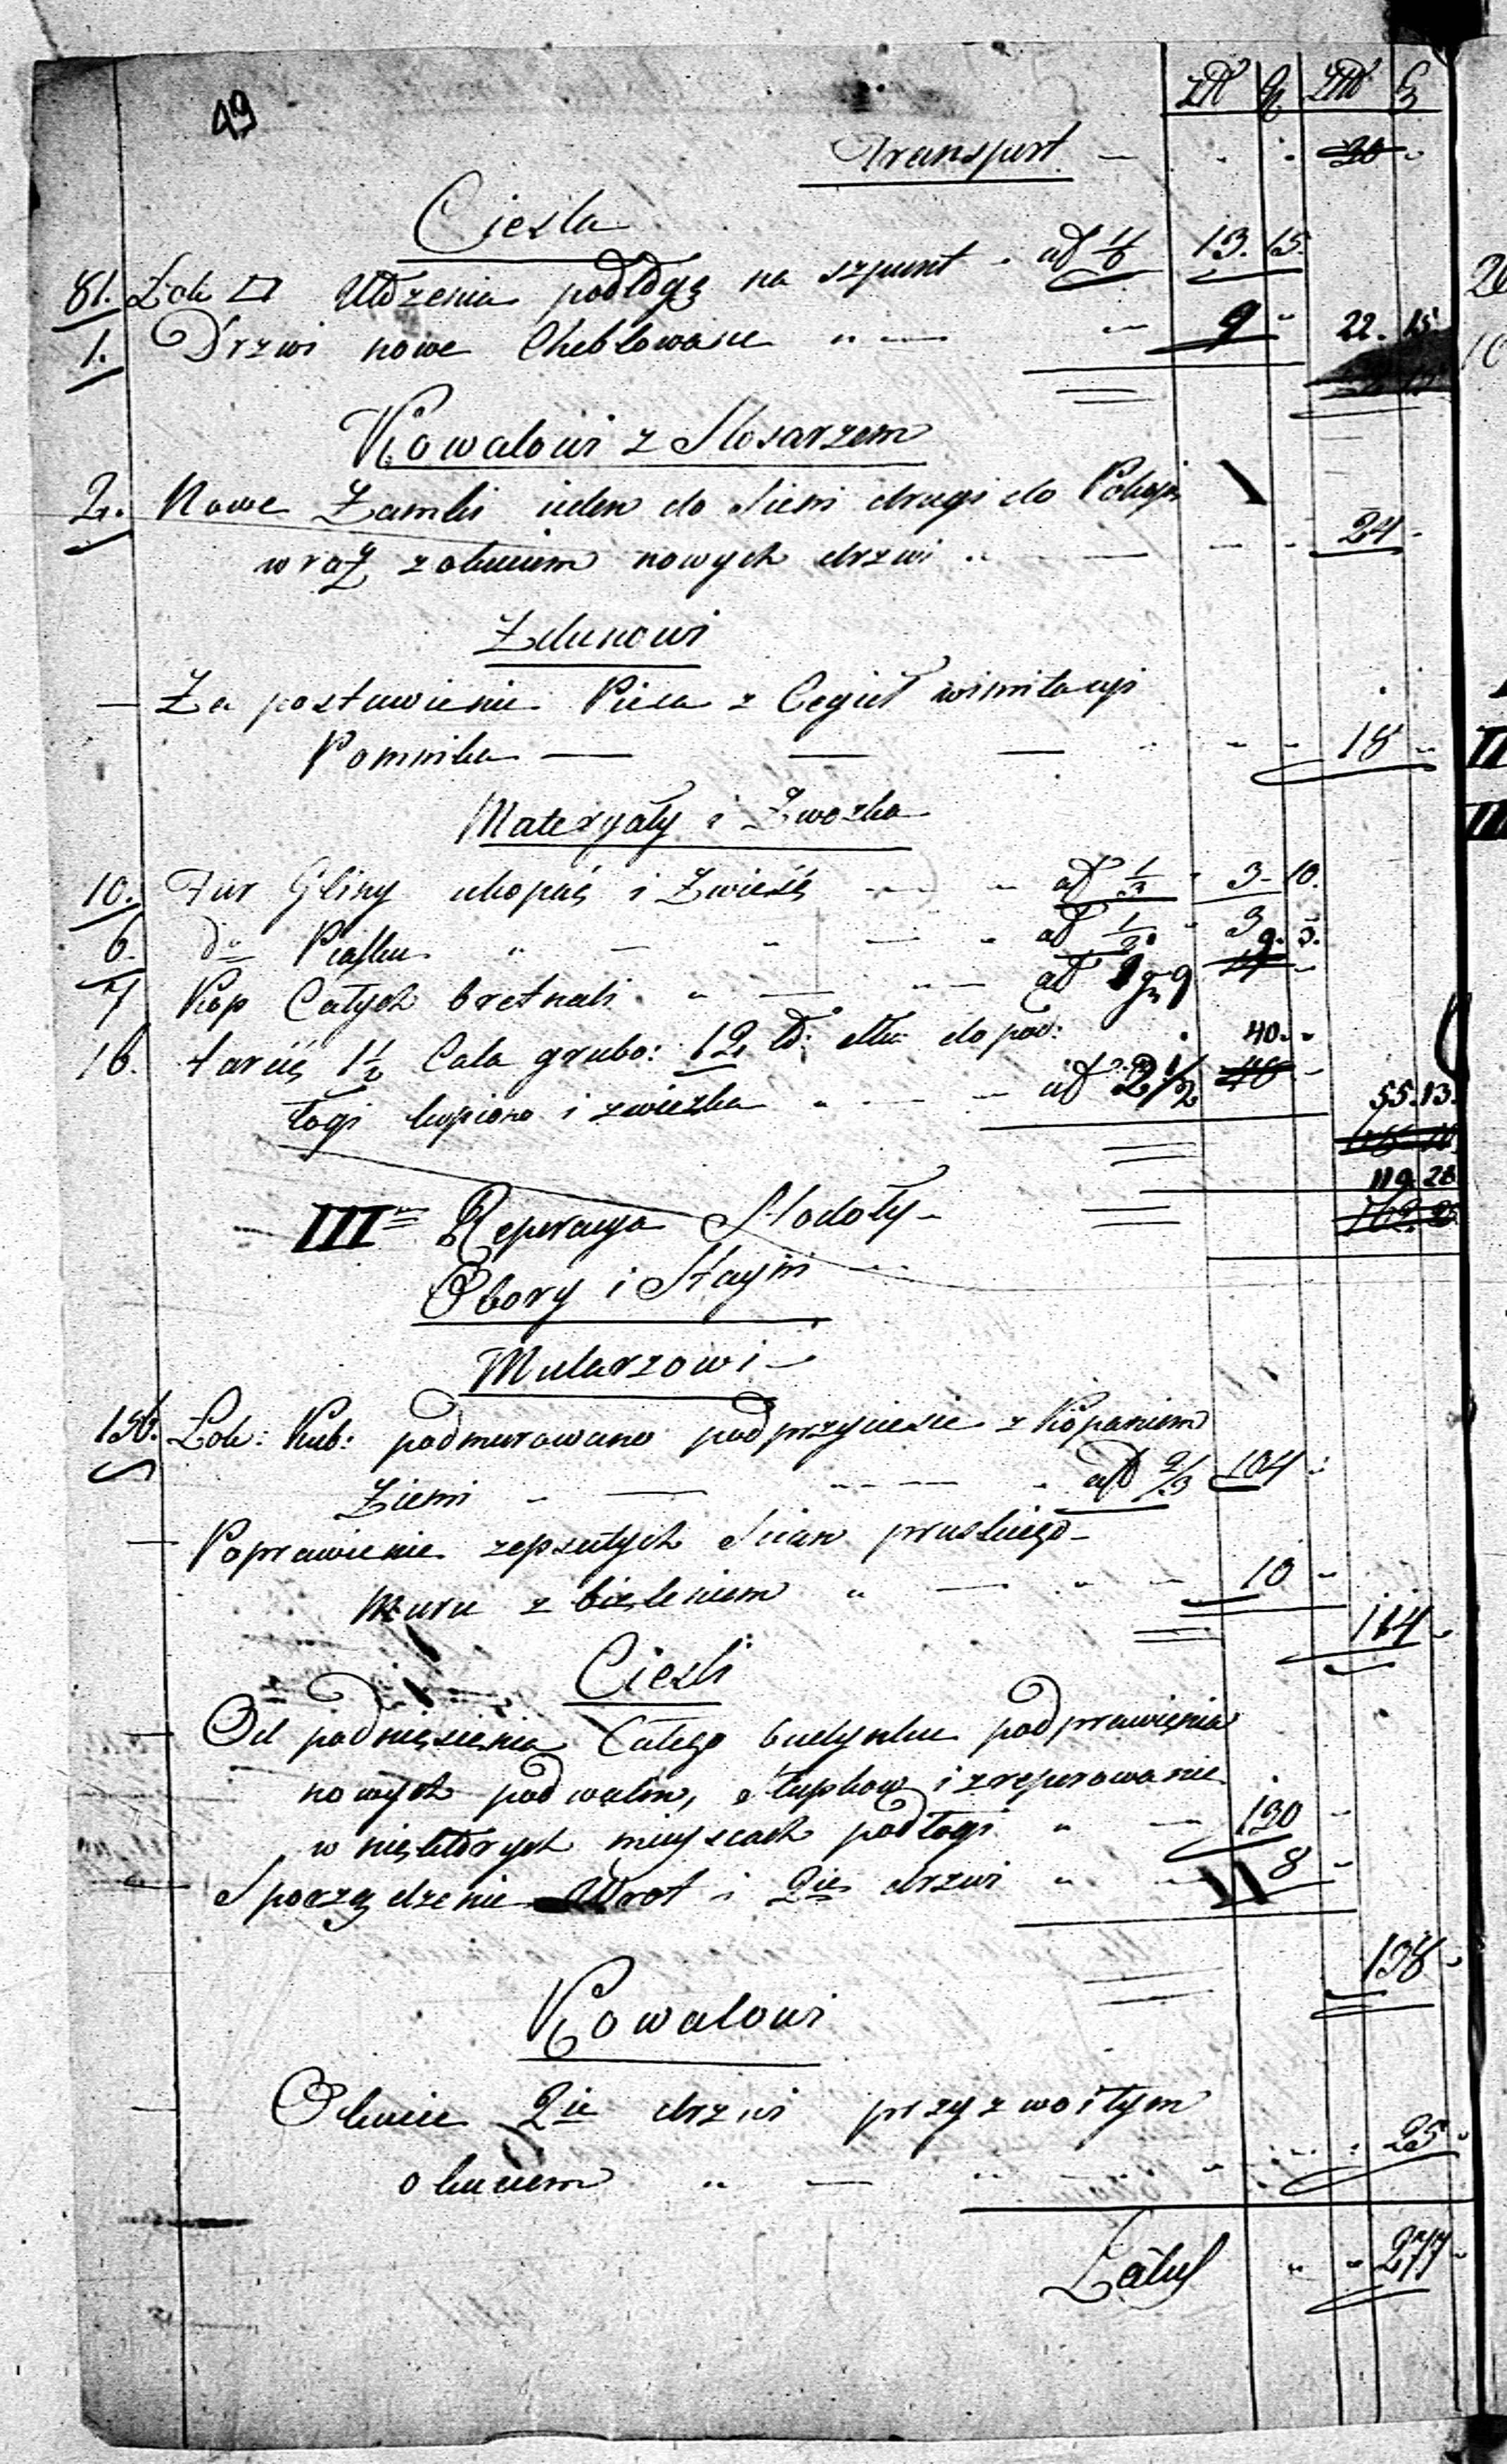 49
Złł gr Złł gr
Transport — 20
Ciesla
81. Łok □ Ułożenia podłogę na szpunt • ał 1/6 13. 15.
1. Drzwi nowe Cheblowane 9 22. 15
Kowalowi z Slosarzem
2. Nowe Zamki ieden do Sieni drugi do Pokoju
wraz z okuciem nowych drzwi 24
Zdunowi
— Za postawienie Pieca z Cegieł wimitacyi
Pomnika — — — 18
Materyały i Zwozka
10. Fur Gliny ukopać i Zwieść ał 1/3 3 — 10.
6. do Piasku ał 1/2 3
7 Kop Całych bretnali ał 1 gr 9 9. 3.
16. tarcic 1 1/2 Cala grubo: 12 ł: dłu: do pod: 40
łogi kupiono i zwiezka ał 2 1/2 55. 13.
119. 28
III Reperacya Stodoły
Obory i Stayni
Mularzowi
156. Łok: Kub: podmurowano pod przyciesie z Kopaniem
Ziemi — ał 2/3 104
— Poprawienie zepsutych Scian pruskiego
Muru z bieleniem 10
114
Ciesli
— Od podniesienia Całego budynku podprawienia
nowych podwalin, Słupkow i zreperowanie
w niektórych mieyscach podłogi 130
— Sporządzenie Wrot i 2ie drzwi 8
138
Kowalowi
— Okucie 2ie drzwi przyzwoitym
okuciem 25
Latus 277